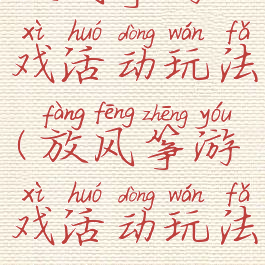 xì huó dòng wán fǎ
戏活动玩法
fàng fēng zhēng yóu
(放风筝游
xì huó dòng wán fǎ
戏活动玩法